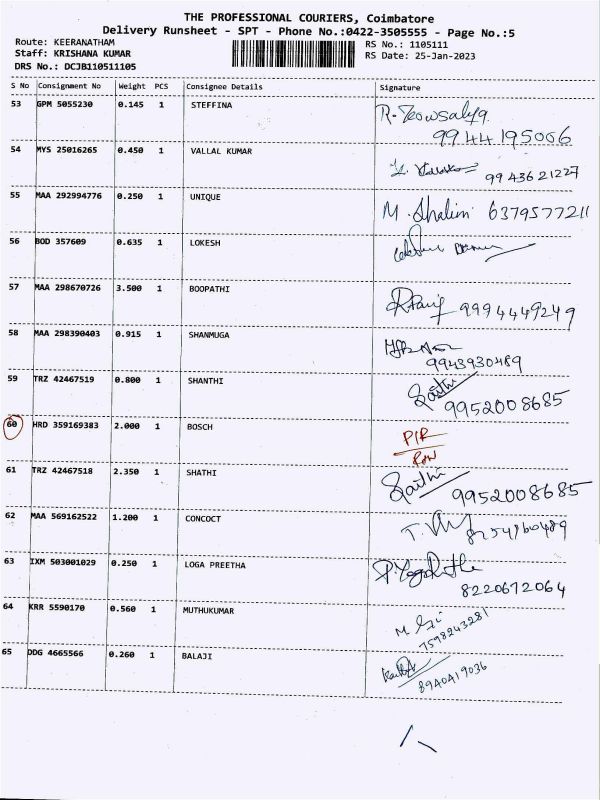 THE PROFESSIONAL COURIERS, Coimbatore
Delivery Runsheet - SPT - Phone No.:0422-3505555 - Page No.:5
Route: KEERANATHAM
RS No.: 1105111
Staff: KRISHANA KUMAR
RS Date: 25-Jan-2023
DRS No.: DCJB110511105
S No Consignment No Weight PCS Consignee Details Signature
53 GPM 5055230 0.145 1 STEFFINA
9944195006
54 MYS 25016265 0.450 1 VALLAL KUMAR
9943621227
55 MAA 292994776 0.250 1 UNIQUE M. Shalini 6379577211
56 BOD 357609 0.635 1 LOKESH
57 MAA 298670726 3.500 1 BOOPATHI 9994449249
58 MAA 298390403 0.915 1 SHANMUGA
9943930489
59 TRZ 42467519 0.800 1 SHANTHI
9952008685
60 HRD 359169383 2.000 1 BOSCH P/R
61 TRZ 42467518 2.350 1 SHATHI
9952008685
62 MAA 569162522 1.200 1 CONCOCT
63 IXM 503001029 0.250 1 LOGA PREETHA
8220672064
64 KRR 5590170 0.560 1 MUTHUKUMAR
7598243281
65 DDG 4665566 0.260 1 BALAJI
8940419036